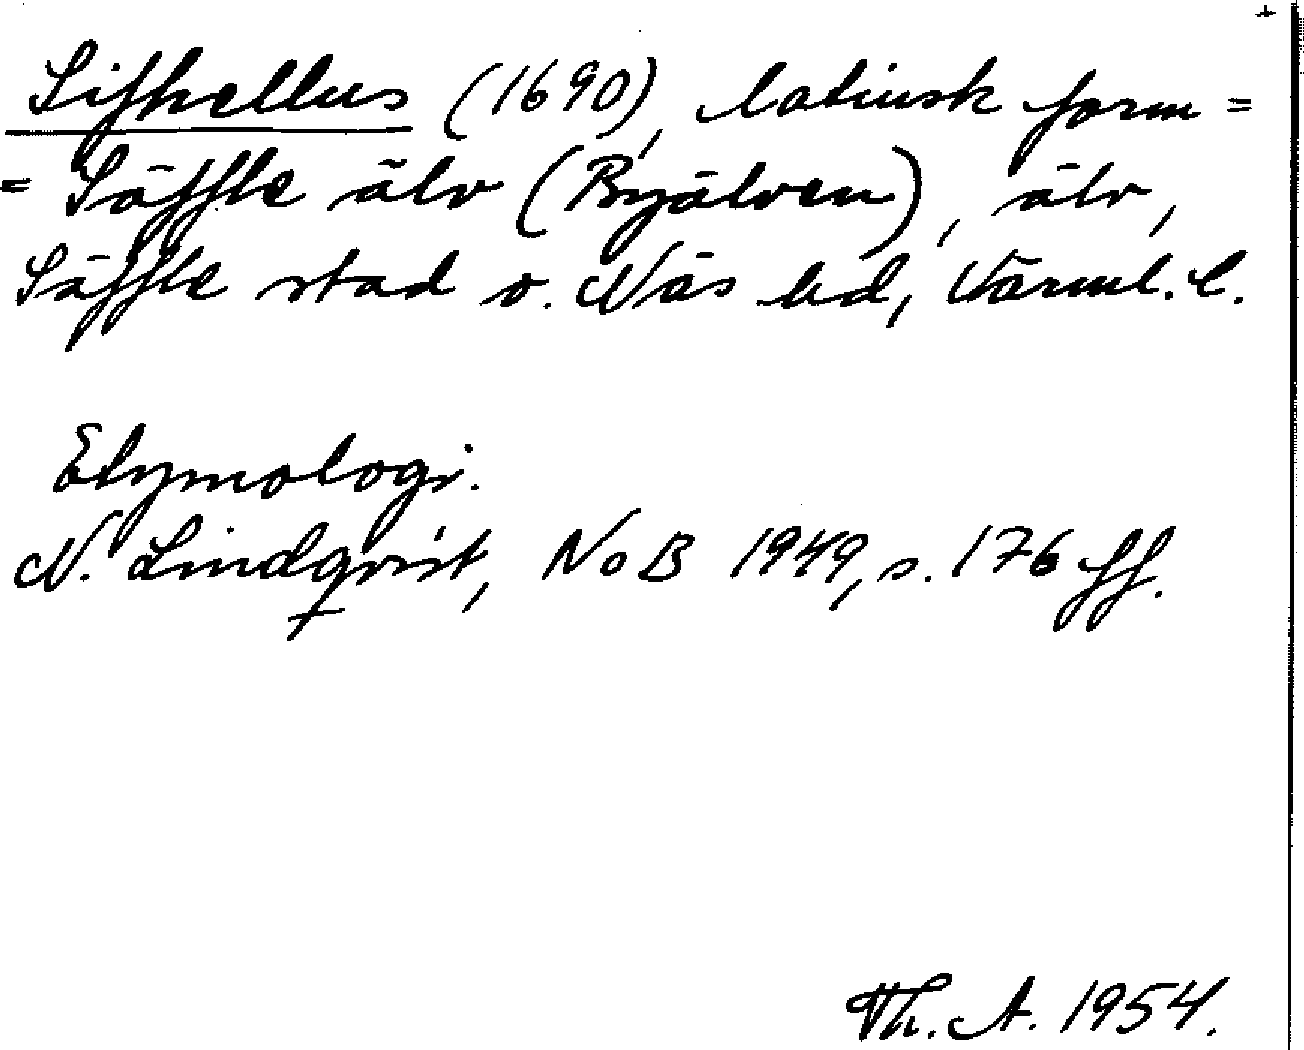 +
Sifhellus (1690), latinsk form =
= Säffle älv (Byälven), älv,
Säffle stad o. Näs hd, Värml. l.
Etymologi.
N. Lindqvist, NoB 1949, s. 176 ff.
Th. A. 1954.